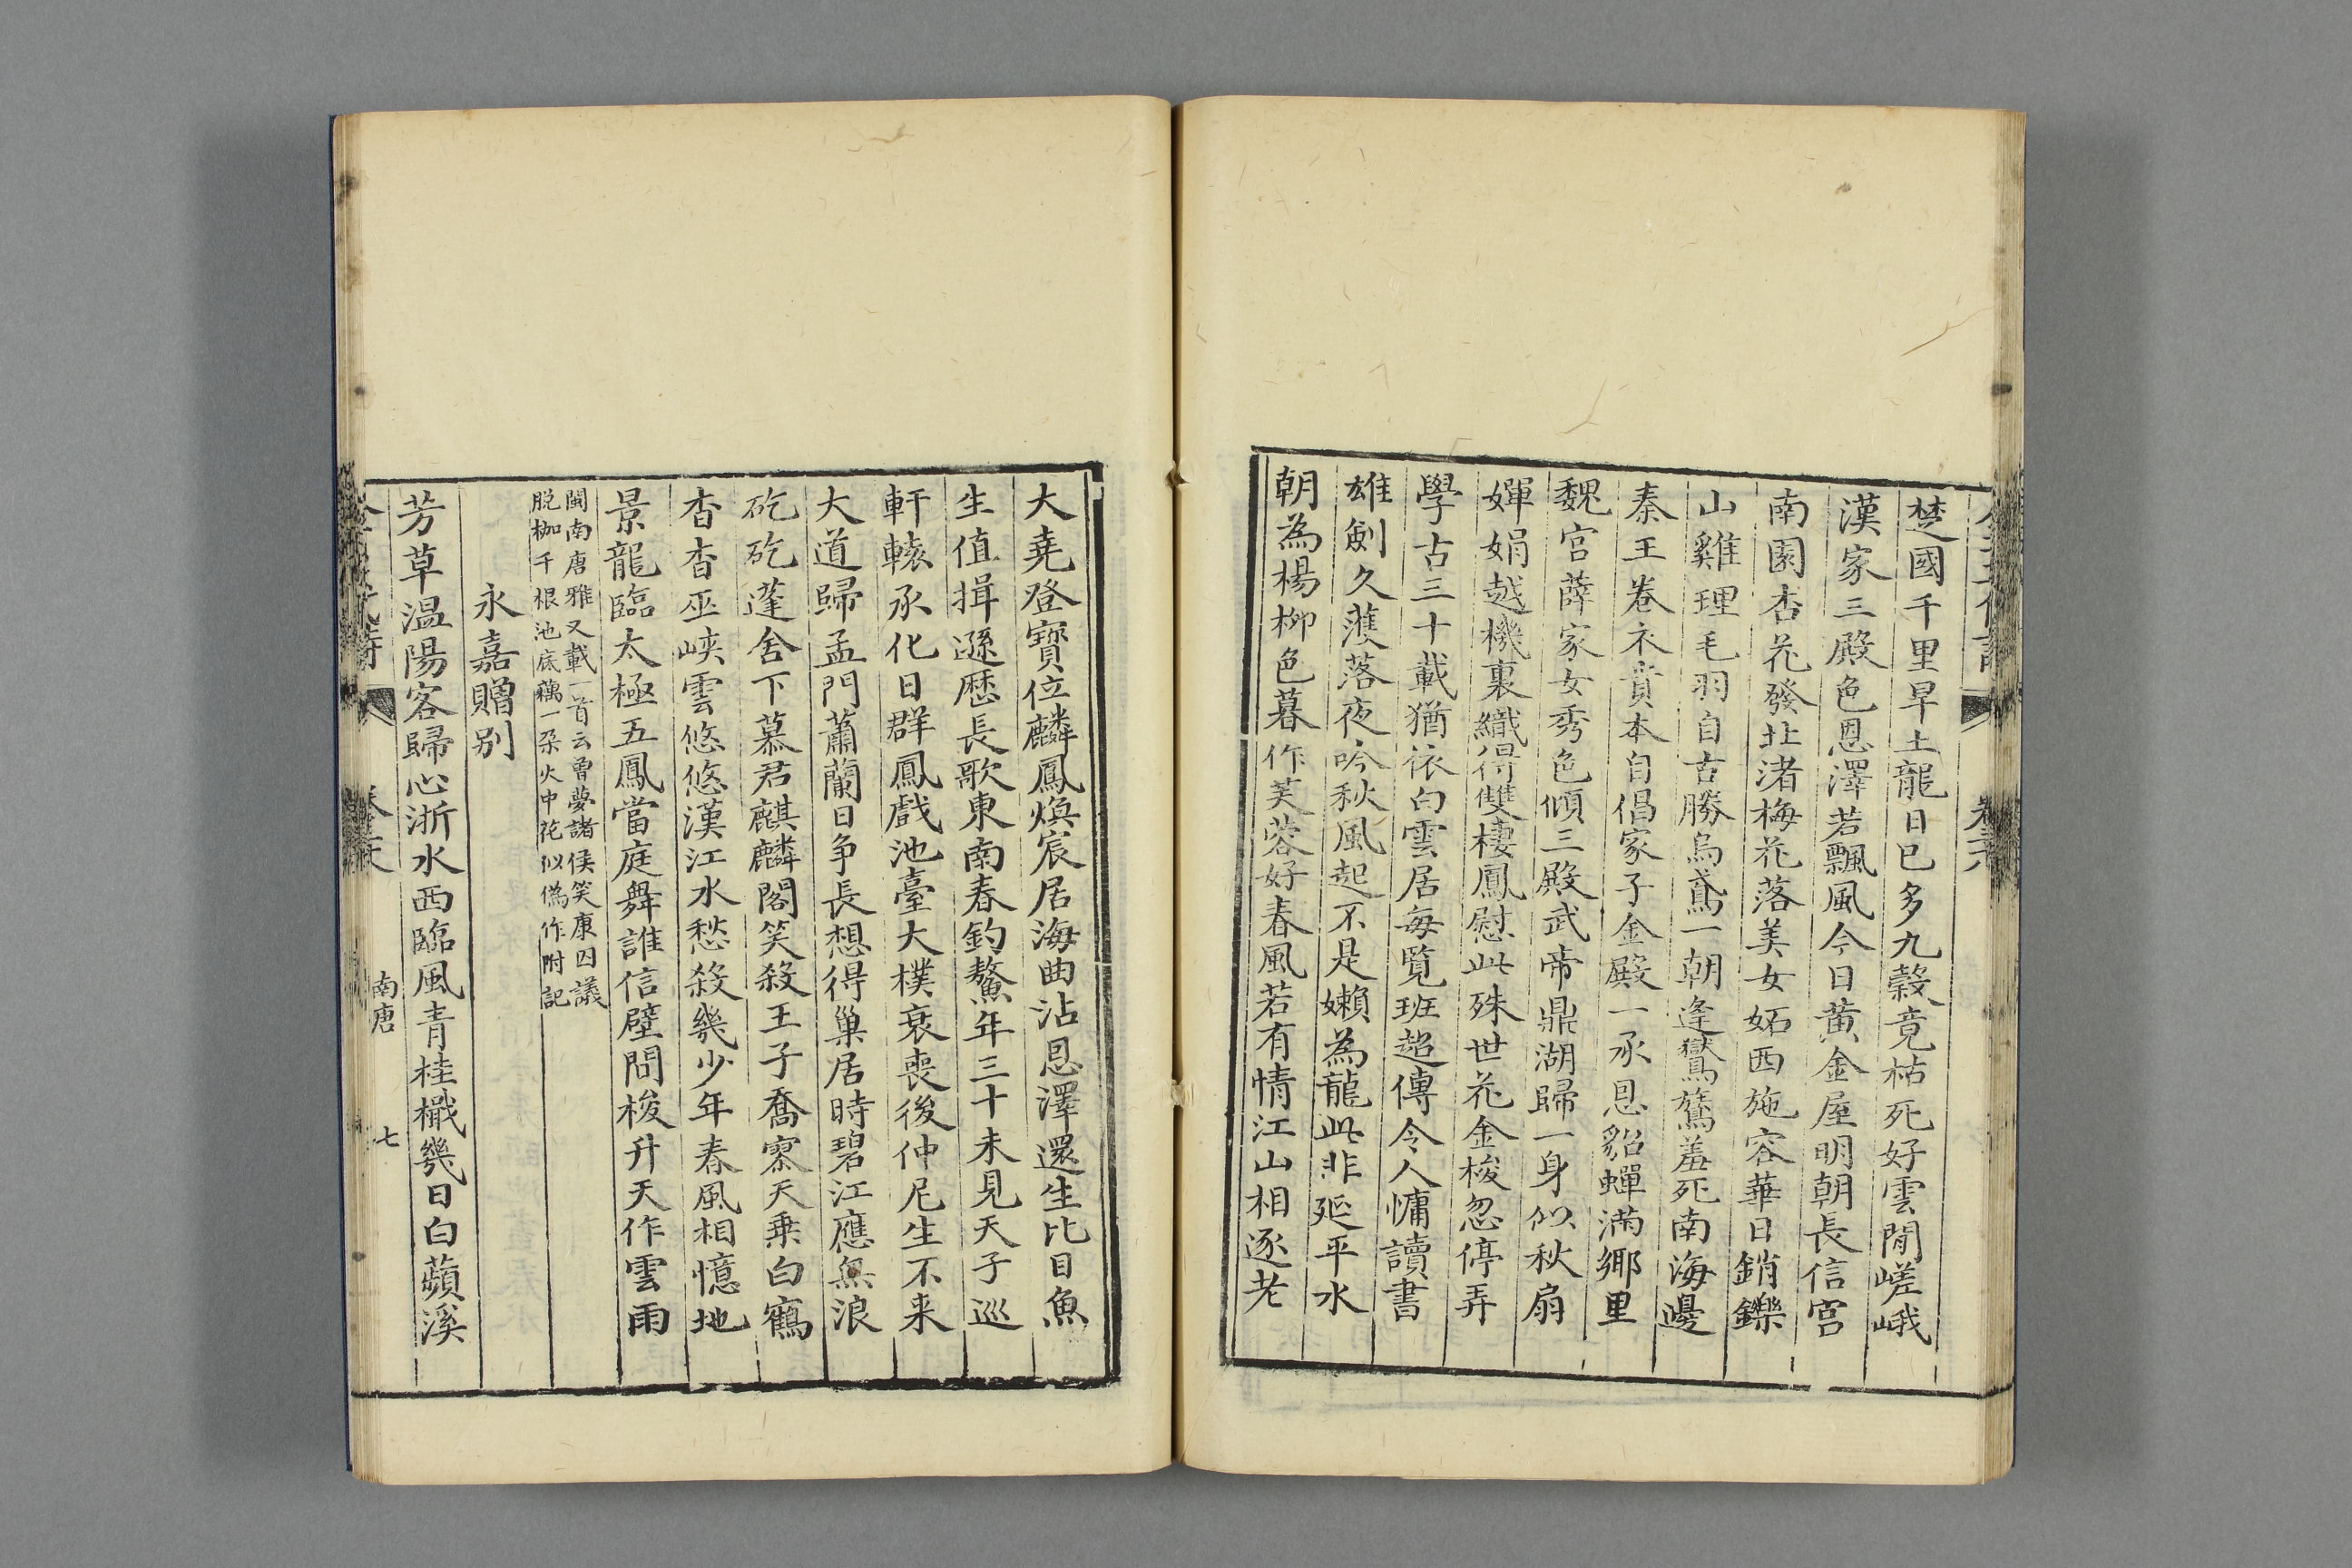 楚國千里旱土龍日已多九穀竟枯死好雲閒嵯峨
漢家三殿色恩澤若飄風今日黃金屋明朝長信宮
南園杏花發北渚梅花落美女妬西施容華日銷鑠
山雞理毛羽自古勝烏鳶一朝逢鸑鷟羞死南海邊
秦王卷衣貴本自倡家子金殿一承恩貂蟬滿鄉里
魏宮薛家女秀色傾三殿武帝鼎湖歸一身似秋扇
嬋娟越機裏織得雙棲鳳慰此殊世花金梭忽停弄
學古三十載猶依白雲居每覽班超傳令人慵讀書
雄劍久濩落夜吟秋風起不是嬾為龍此非延平水
朝為楊柳色暮作芙蓉好春風若有情江山相逐老
大堯登寶位麟鳳煥宸居海曲沾恩澤還生比目魚
生值揖遜歷長歌東南春釣鰲年三十未見天子巡
軒轅承化日群鳳戲池臺大樸衰喪後仲尼生不来
大道歸孟門蕭蘭日争長想得巢居時碧江應無浪
矻矻蓬舍下慕君麒麟閣笑殺王子喬寥天乗白鶴
杳杳巫峽雲悠悠漢江水愁殺幾少年春風相憶地
景龍臨太極五鳳當庭舞誰信壁間梭升天作雲雨
閩南唐雅又載一首云曾夢諸侯笑康囚議
脫枷千根池底藕一朶火中花似偽作附記
永嘉贈别
芳草温陽客歸心浙水西臨風青桂檝幾日白蘋溪
南唐
七